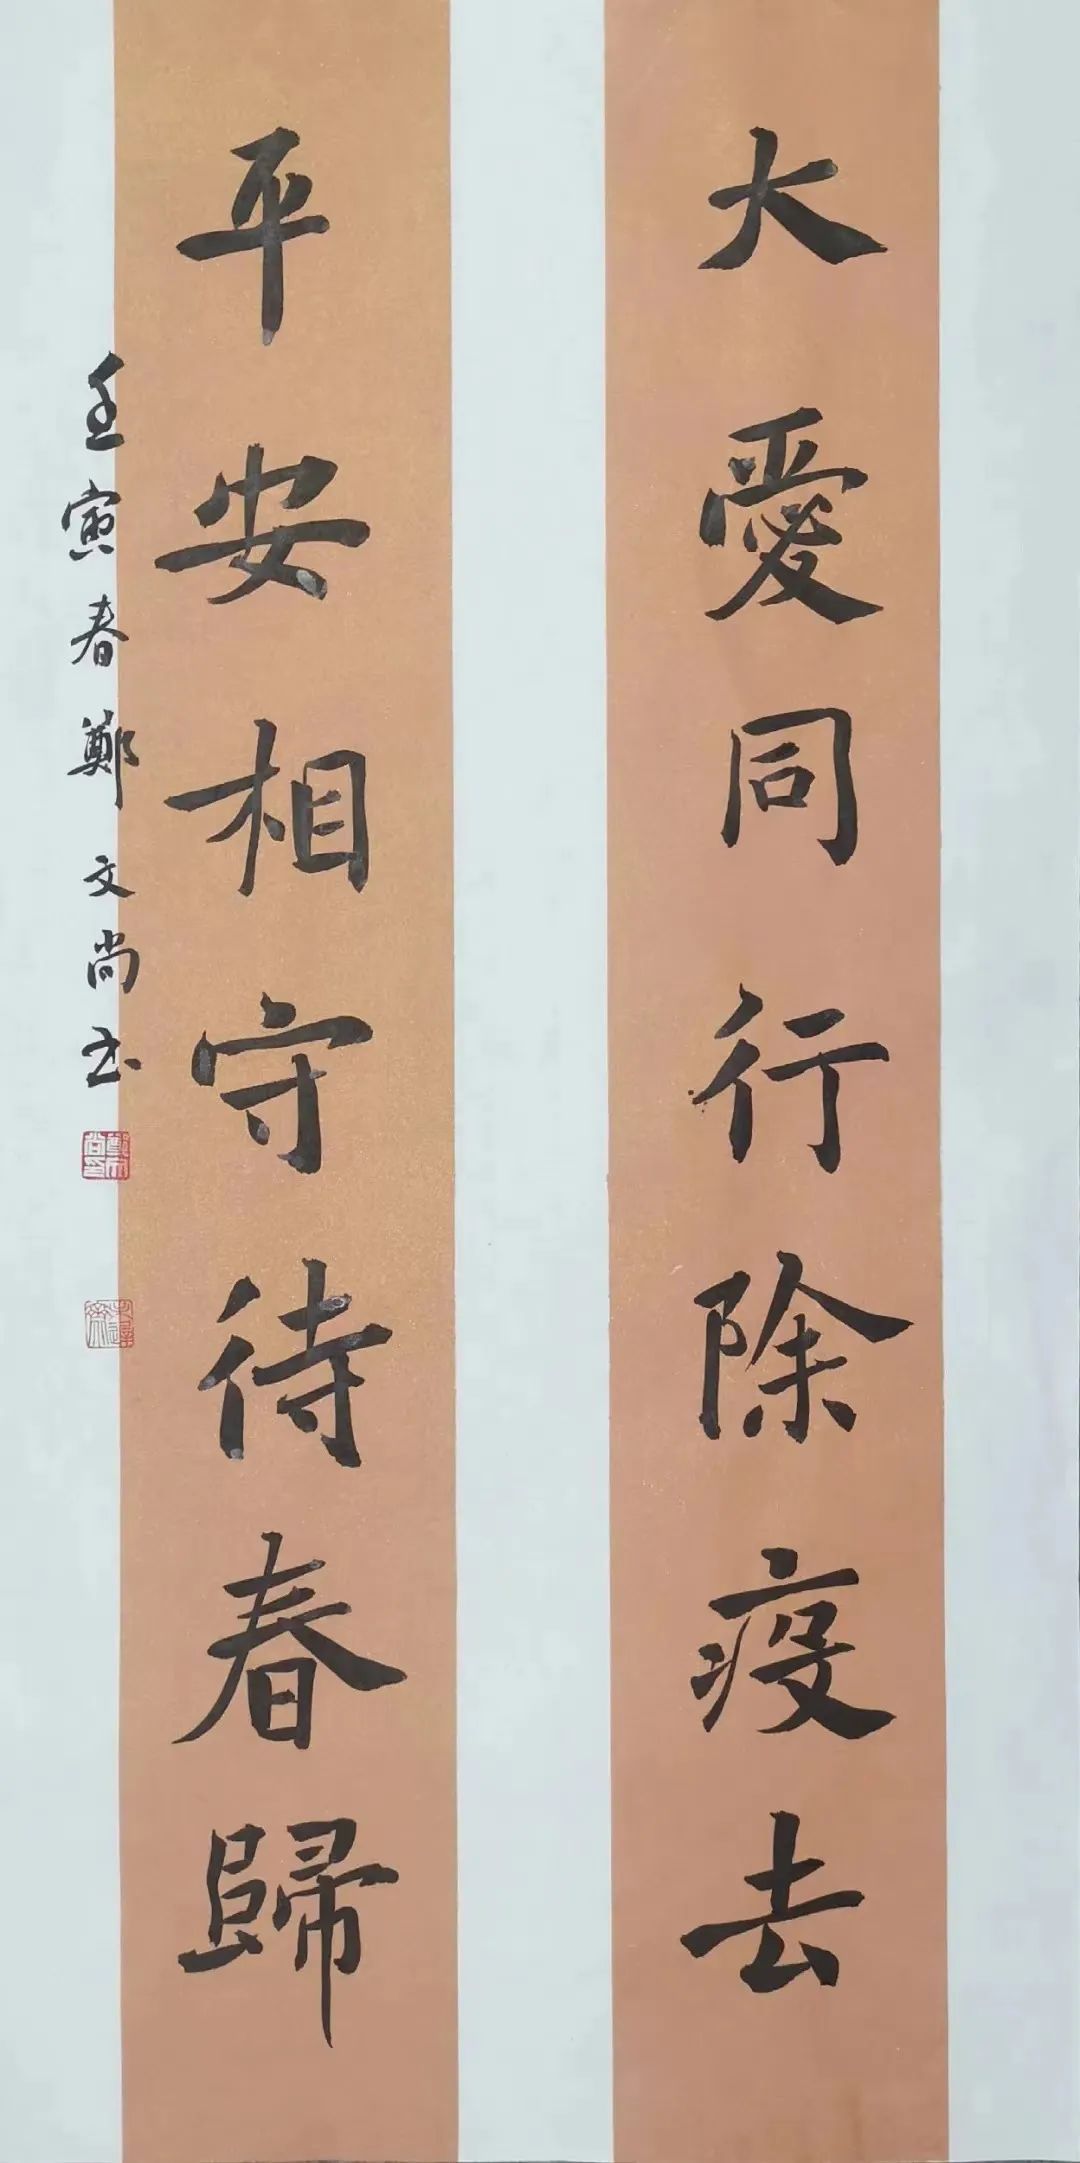 大愛同行除疫去
平安相守待春歸
壬寅春鄭文尚书